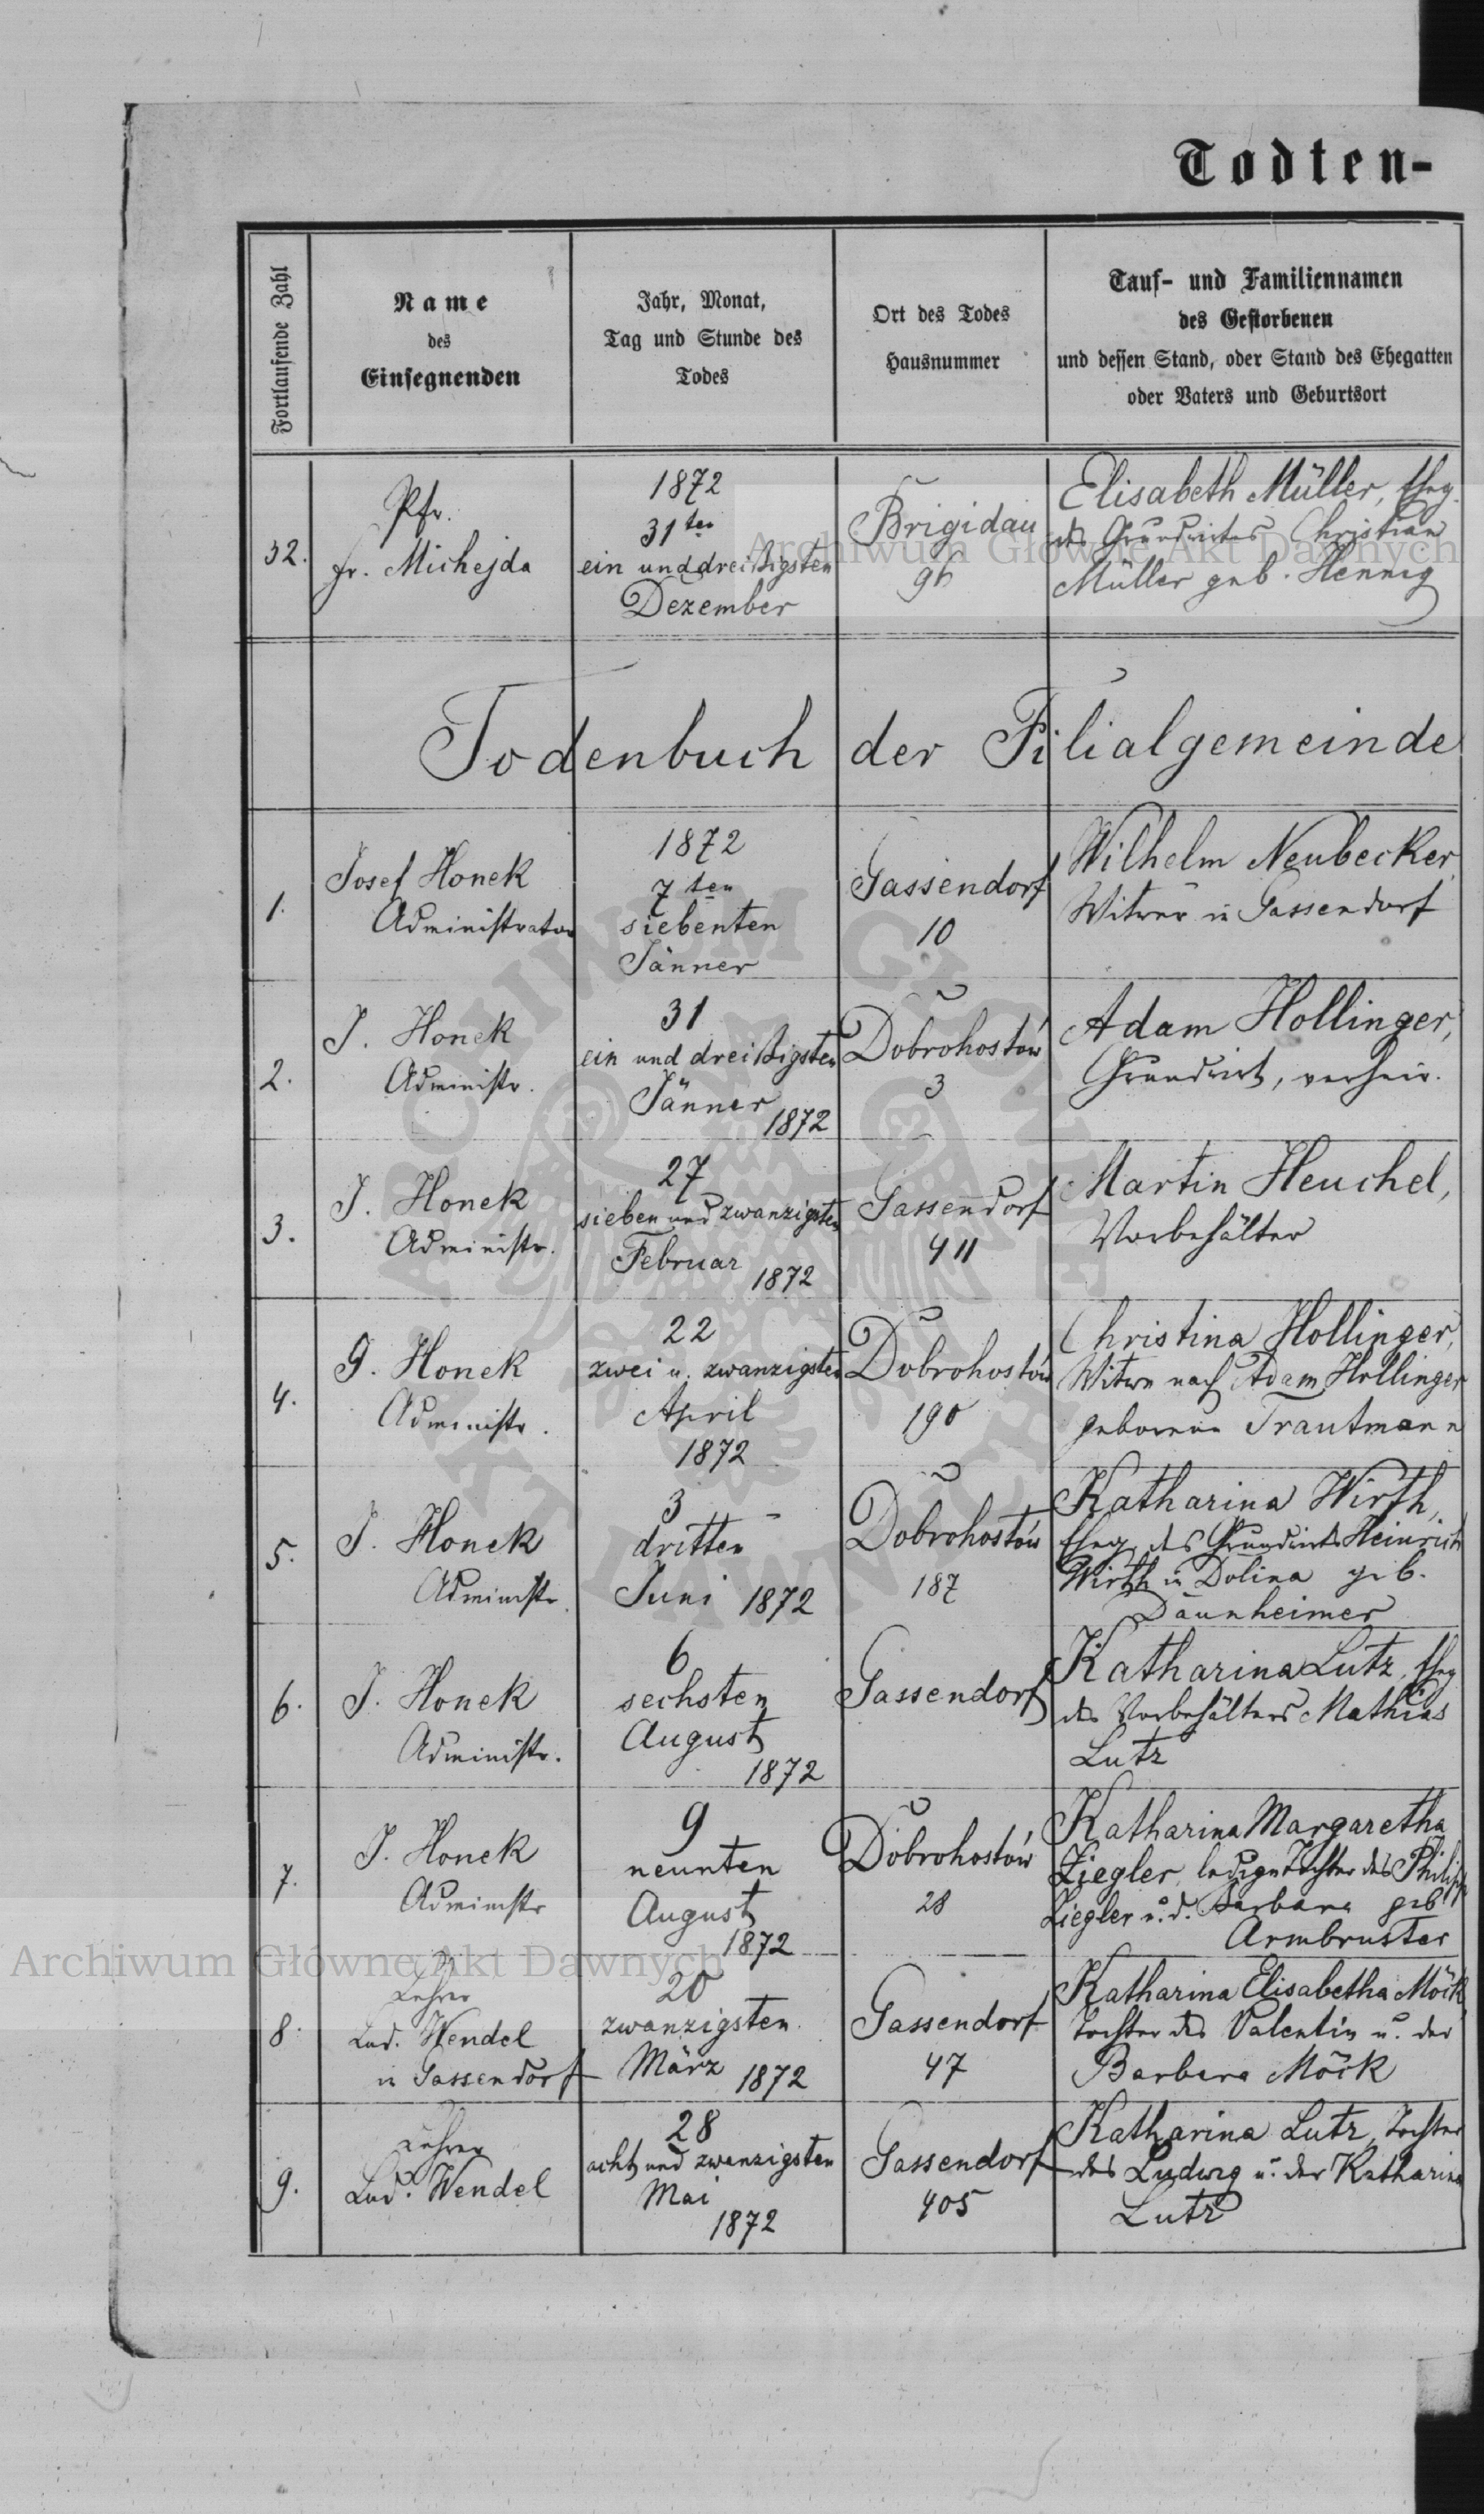 Todten-
Fortlaufende Zahl
Name
des
Einsegnenden
Jahr, Monat,
Tag und Stunde des
Todes
Ort des Todes
Hausnummer
Tauf- und Familiennamen
des Gestorbenen
und dessen Stand, oder Stand des Ehegatten
oder Vaters und Geburtsort
32.
Pfr.
Fr. Michejda
1872
31ten
ein und dreißigsten
Dezember
Brigidau
96
Elisabeth Müller, Eheg.
des Grundwirtes Christian
Müller geb. Hennig
Todenbuch der Filialgemeinde
1.
Josef Honek
Administrator
1872
7ten
siebenten
Jänner
Gassendorf
10
Wilhelm Neubecker,
Witwer in Gassendorf
2.
J. Honek
Administr.
31
ein und dreißigsten
Jänner
1872
Dobrohostów
3
Adam Hollinger,
Grundwirt, verheir.
3.
J. Honek
Administr.
27
sieben und zwanzigsten
Februar
1872
Gassendorf
411
Martin Heuchel,
Vorbehälter
4.
J. Honek
Administr.
22
zwei u. zwanzigsten
April
1872
Dobrohostów
190
Christina Hollinger,
Witwe nach Adam Hollinger
geborene Trautmann
5.
J. Honek
Administr.
3
dritten
Juni 1872
Dobrohostów
187
Katharina Wirth,
Eheg. des Grundwirts Heinrich
Wirth in Dolina geb.
Daunheimer
6.
J. Honek
Administr.
6
sechsten
August
1872
Gassendorf
Katharina Lutz, Eheg
des Vorbehälters Mathias
Lutz
7.
J. Honek
Administr
9
neunten
August
1872
Dobrohostów
28
Katharina Margaretha
Ziegler, ledige Tochter des Philipp
Ziegler u. d. Barbara geb
Armbruster
8.
Lehrer
Lud. Wendel
in Gassendorf
20
zwanzigsten
März 1872
Gassendorf
47
Katharina Elisabetha Möck,
Tochter des Valentin u. der
Barbara Möck
9.
Lehrer
Lud. Wendel
28
acht und zwanzigsten
Mai
1872
Gassendorf
405
Katharina Lutz, Tochter
des Ludwig u. der Katharina
Lutz
Archiwum Główne Akt Dawnych
Archiwum Główne Akt Dawnych
ARCHIWUM GŁÓWNE AKT DAWNYCH